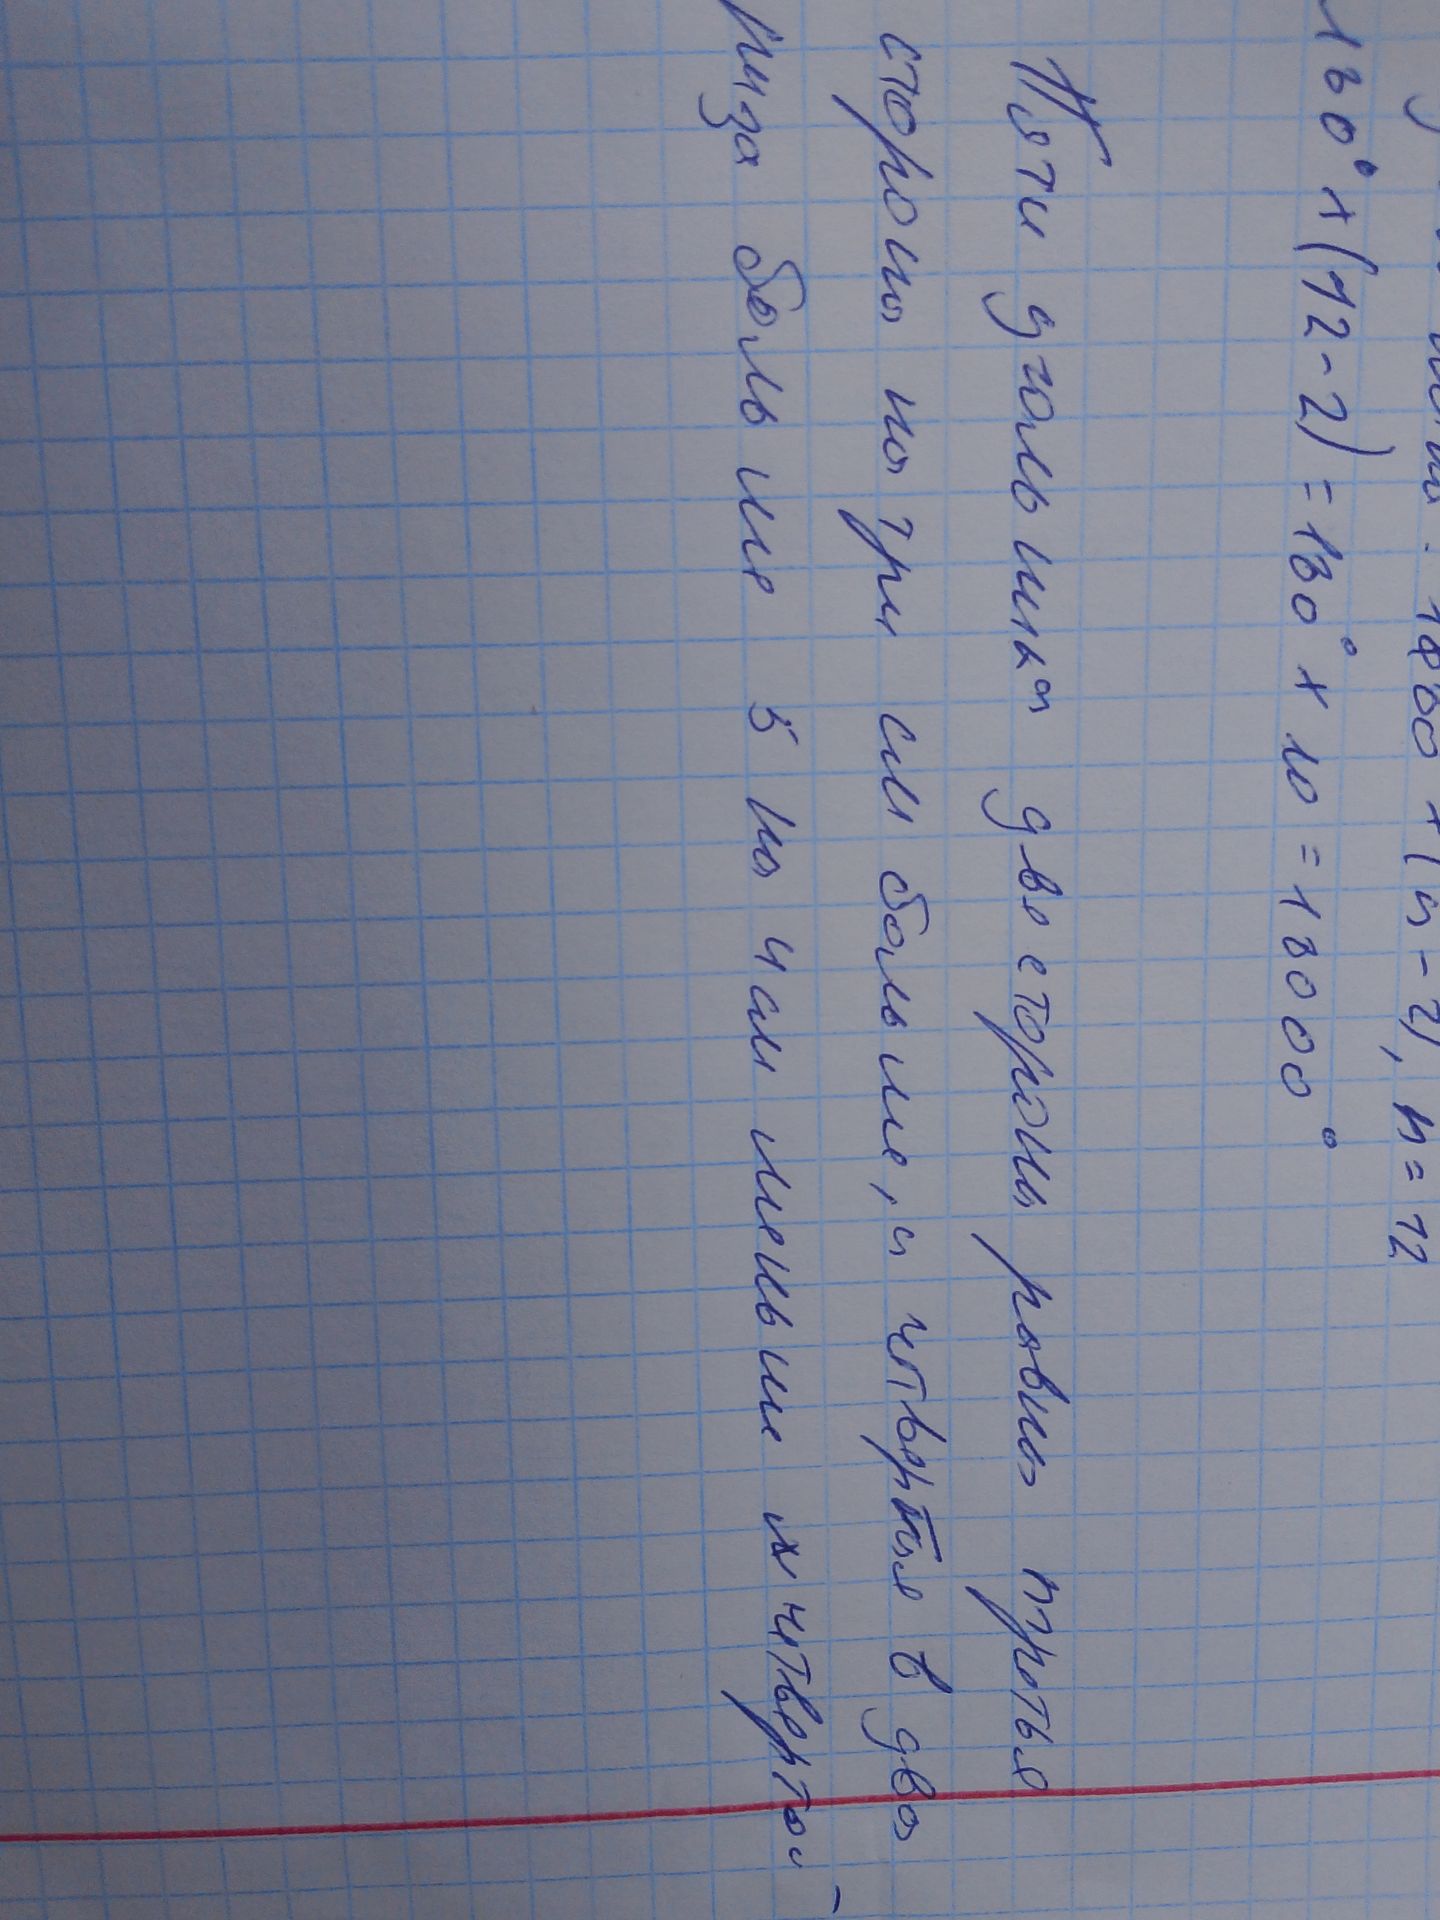 1800 × (n-2), n=12
180° × (12-2) = 180° × 10 = 1800°
Пяти уголника две стороны равны третья
стороны на три см больше, а чтвертая в два
раза больше 5 на 4 см меньше чтвертой